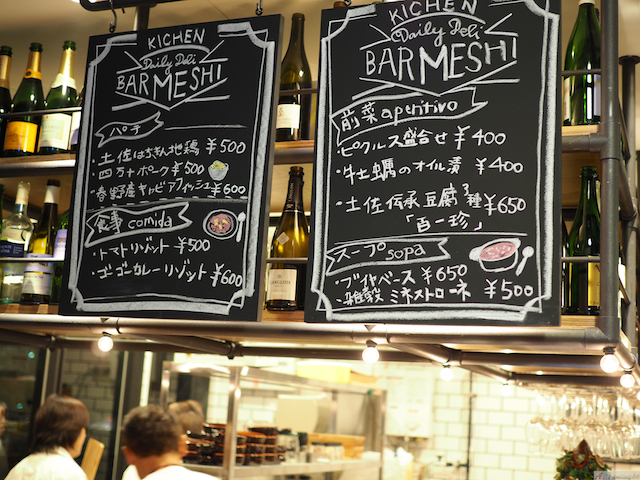 KICHEN
Daily Deli
BARMESHI
パテ
・土佐はちきん地鶏 ¥500
・四万十ポーク ¥500
・春野産キャビアフィッシュ ¥600
食事 comida
・トマトリゾット ¥500
・ゴーゴーカレーリゾット ¥600
KICHEN
Daily Deli
BARMESHI
前菜 aperitivo
・ピクルス盛合せ ¥400
・牡蠣のオイル漬 ¥400
・土佐伝承豆腐3種 ¥650
「百一珍」
スープ sopa
・ブイヤベース ¥650
・雑穀ミネストローネ ¥500